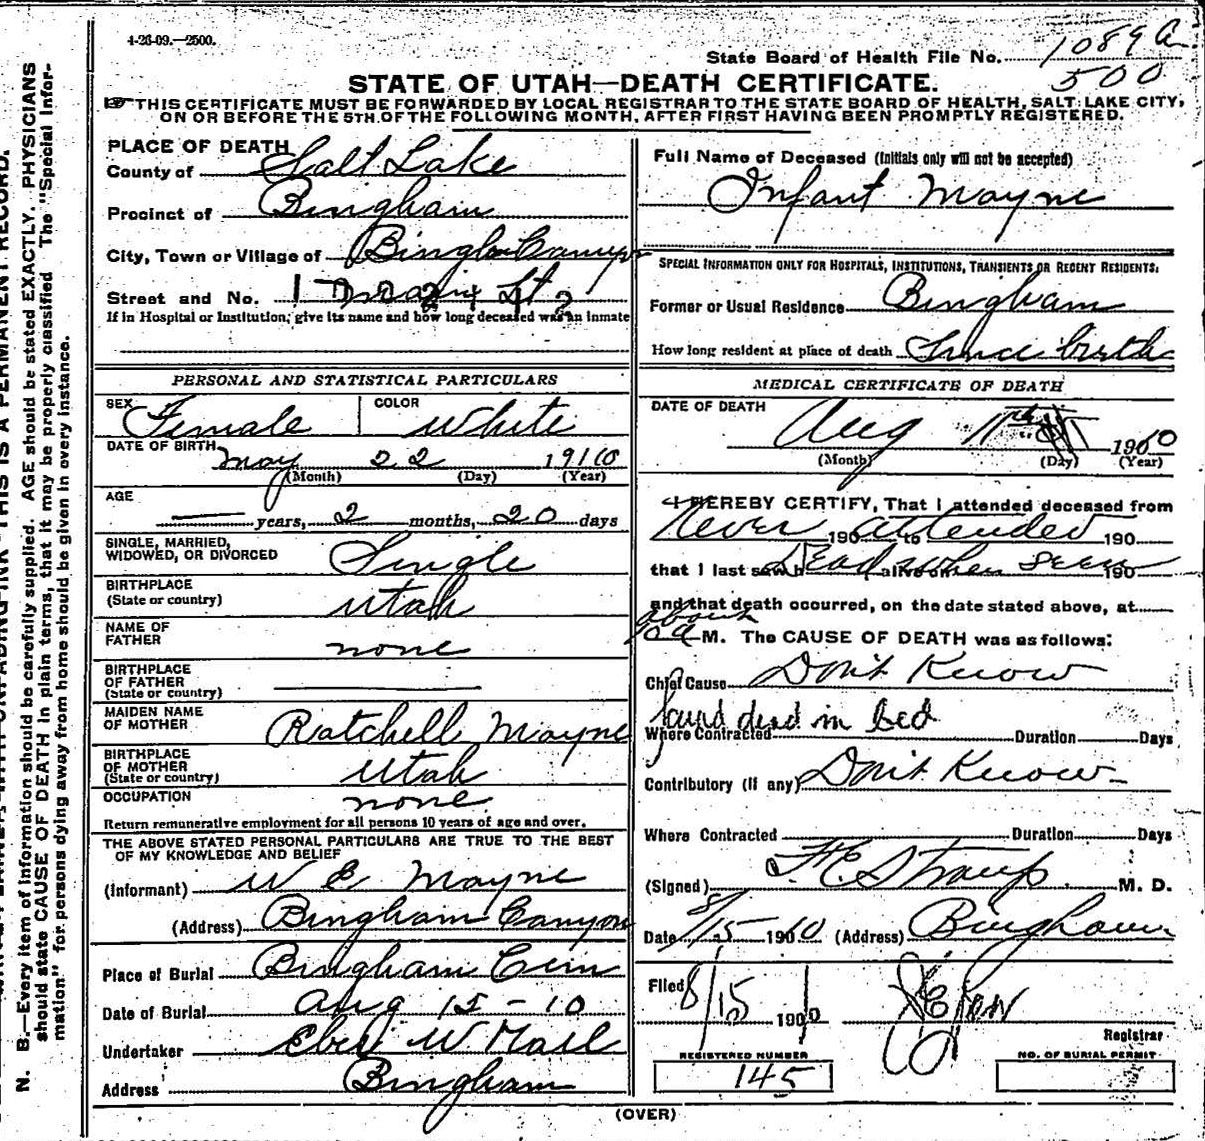 4-26-09.—2500.
State Board of Health File No. 1089 a
500
STATE OF UTAH—DEATH CERTIFICATE.
THIS CERTIFICATE MUST BE FORWARDED BY LOCAL REGISTRAR TO THE STATE BOARD OF HEALTH, SALT LAKE CITY,
ON OR BEFORE THE 5TH. OF THE FOLLOWING MONTH, AFTER FIRST HAVING BEEN PROMPTLY REGISTERED.
PLACE OF DEATH
County of Salt Lake
Precinct of Bingham
City, Town or Village of Bingham Canyon
Street and No.
If in Hospital or Institution, give its name and how long deceased was an inmate
PERSONAL AND STATISTICAL PARTICULARS
SEX Female COLOR White
DATE OF BIRTH May 22 1910
(Month) (Day) (Year)
AGE
— years, 2 months, 20 days
SINGLE, MARRIED,
WIDOWED, OR DIVORCED Single
BIRTHPLACE
(State or country) Utah
NAME OF
FATHER none
BIRTHPLACE
OF FATHER
(State or country)
MAIDEN NAME
OF MOTHER Ratchell Mayne
BIRTHPLACE
OF MOTHER
(State or country) Utah
OCCUPATION none
Return remunerative employment for all persons 10 years of age and over.
THE ABOVE STATED PERSONAL PARTICULARS ARE TRUE TO THE BEST
OF MY KNOWLEDGE AND BELIEF
(Informant) W E Mayne
(Address) Bingham Canyon
Place of Burial Bingham Cem
Date of Burial Aug 15-10
Undertaker W Hall
Address Bingham
Full Name of Deceased (Initials only will not be accepted)
Infant Mayne
SPECIAL INFORMATION ONLY FOR HOSPITALS, INSTITUTIONS, TRANSIENTS OR RECENT RESIDENTS.
Former or Usual Residence Bingham
How long resident at place of death Since birth
MEDICAL CERTIFICATE OF DEATH
DATE OF DEATH
Aug 11th 1910
(Month) (Day) (Year)
I HEREBY CERTIFY, That I attended deceased from
never 190 attended to 190
that I last saw h Dead when seen alive on 190
and that death occurred, on the date stated above, at
about
M. The CAUSE OF DEATH was as follows:
Chief Cause Don't Know
found dead in bed
Where Contracted Duration Days
Contributory (if any) Don't Know
Where Contracted Duration Days
(Signed) F.E. Straup M. D.
Date 8/15 1910 (Address) Bingham
Filed 8/15 1910
Registrar
REGISTERED NUMBER
145
NO. OF BURIAL PERMIT
(OVER)
N. B.—Every item of information should be carefully supplied. AGE should be stated EXACTLY. PHYSICIANS
should state CAUSE OF DEATH in plain terms, that it may be properly classified. The "Special Infor-
mation" for persons dying away from home should be given in every instance.